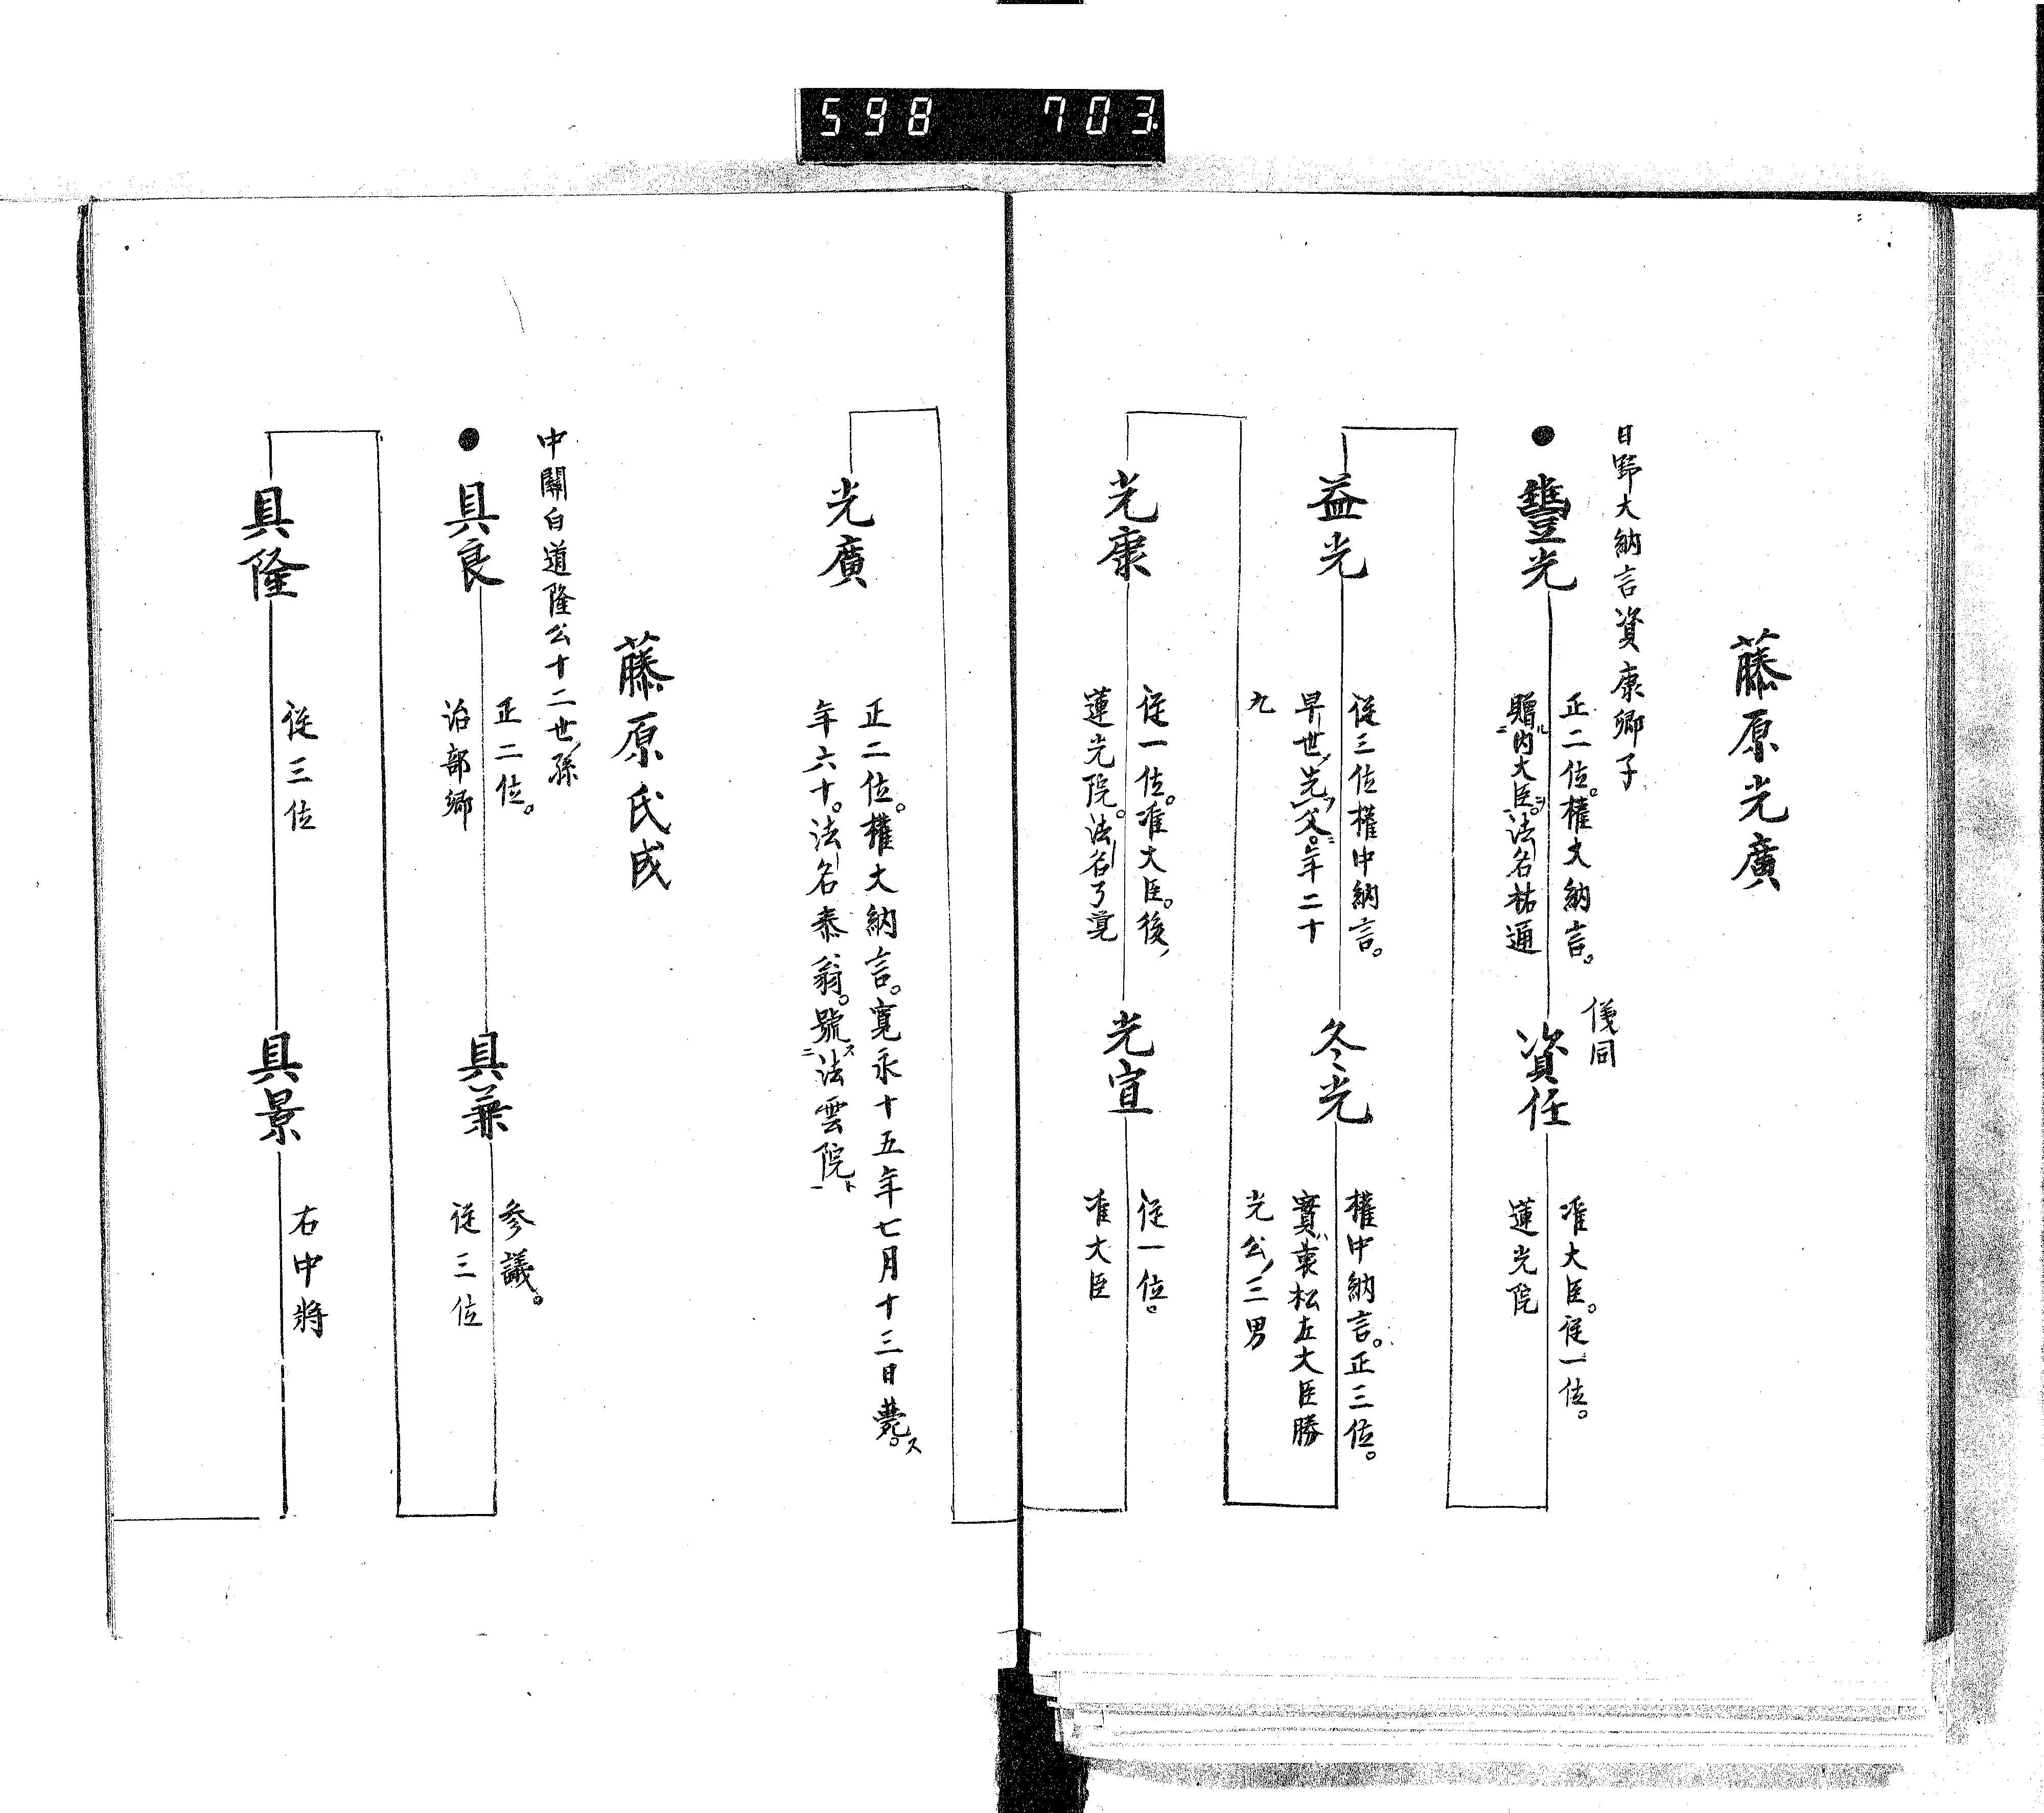 598 703
藤原光廣
日野大納言資康卿子
● 豐光
正二位。權大納言。
贈ル内大臣ヲ。法名祐通
資任
儀同
准大臣。従一位。
蓮光院
益光
従三位權中納言。
早世、先ツ父ニ。年二十
九
冬光
權中納言。正三位。
實ハ裏松左大臣勝
光公ノ三男
光康
従一位。准大臣。後ノ
蓮光院。法名了覚
光宣
従一位。
准大臣
光廣
正二位。權大納言。寛永十五年七月十三日薨ス。
年六十。法名泰翁。號ス法雲院ト
藤原氏成
中關白道隆公十二世ノ孫
● 具良
正二位。
治部卿
具兼
参議。
従三位
具隆
従三位
具景
右中將